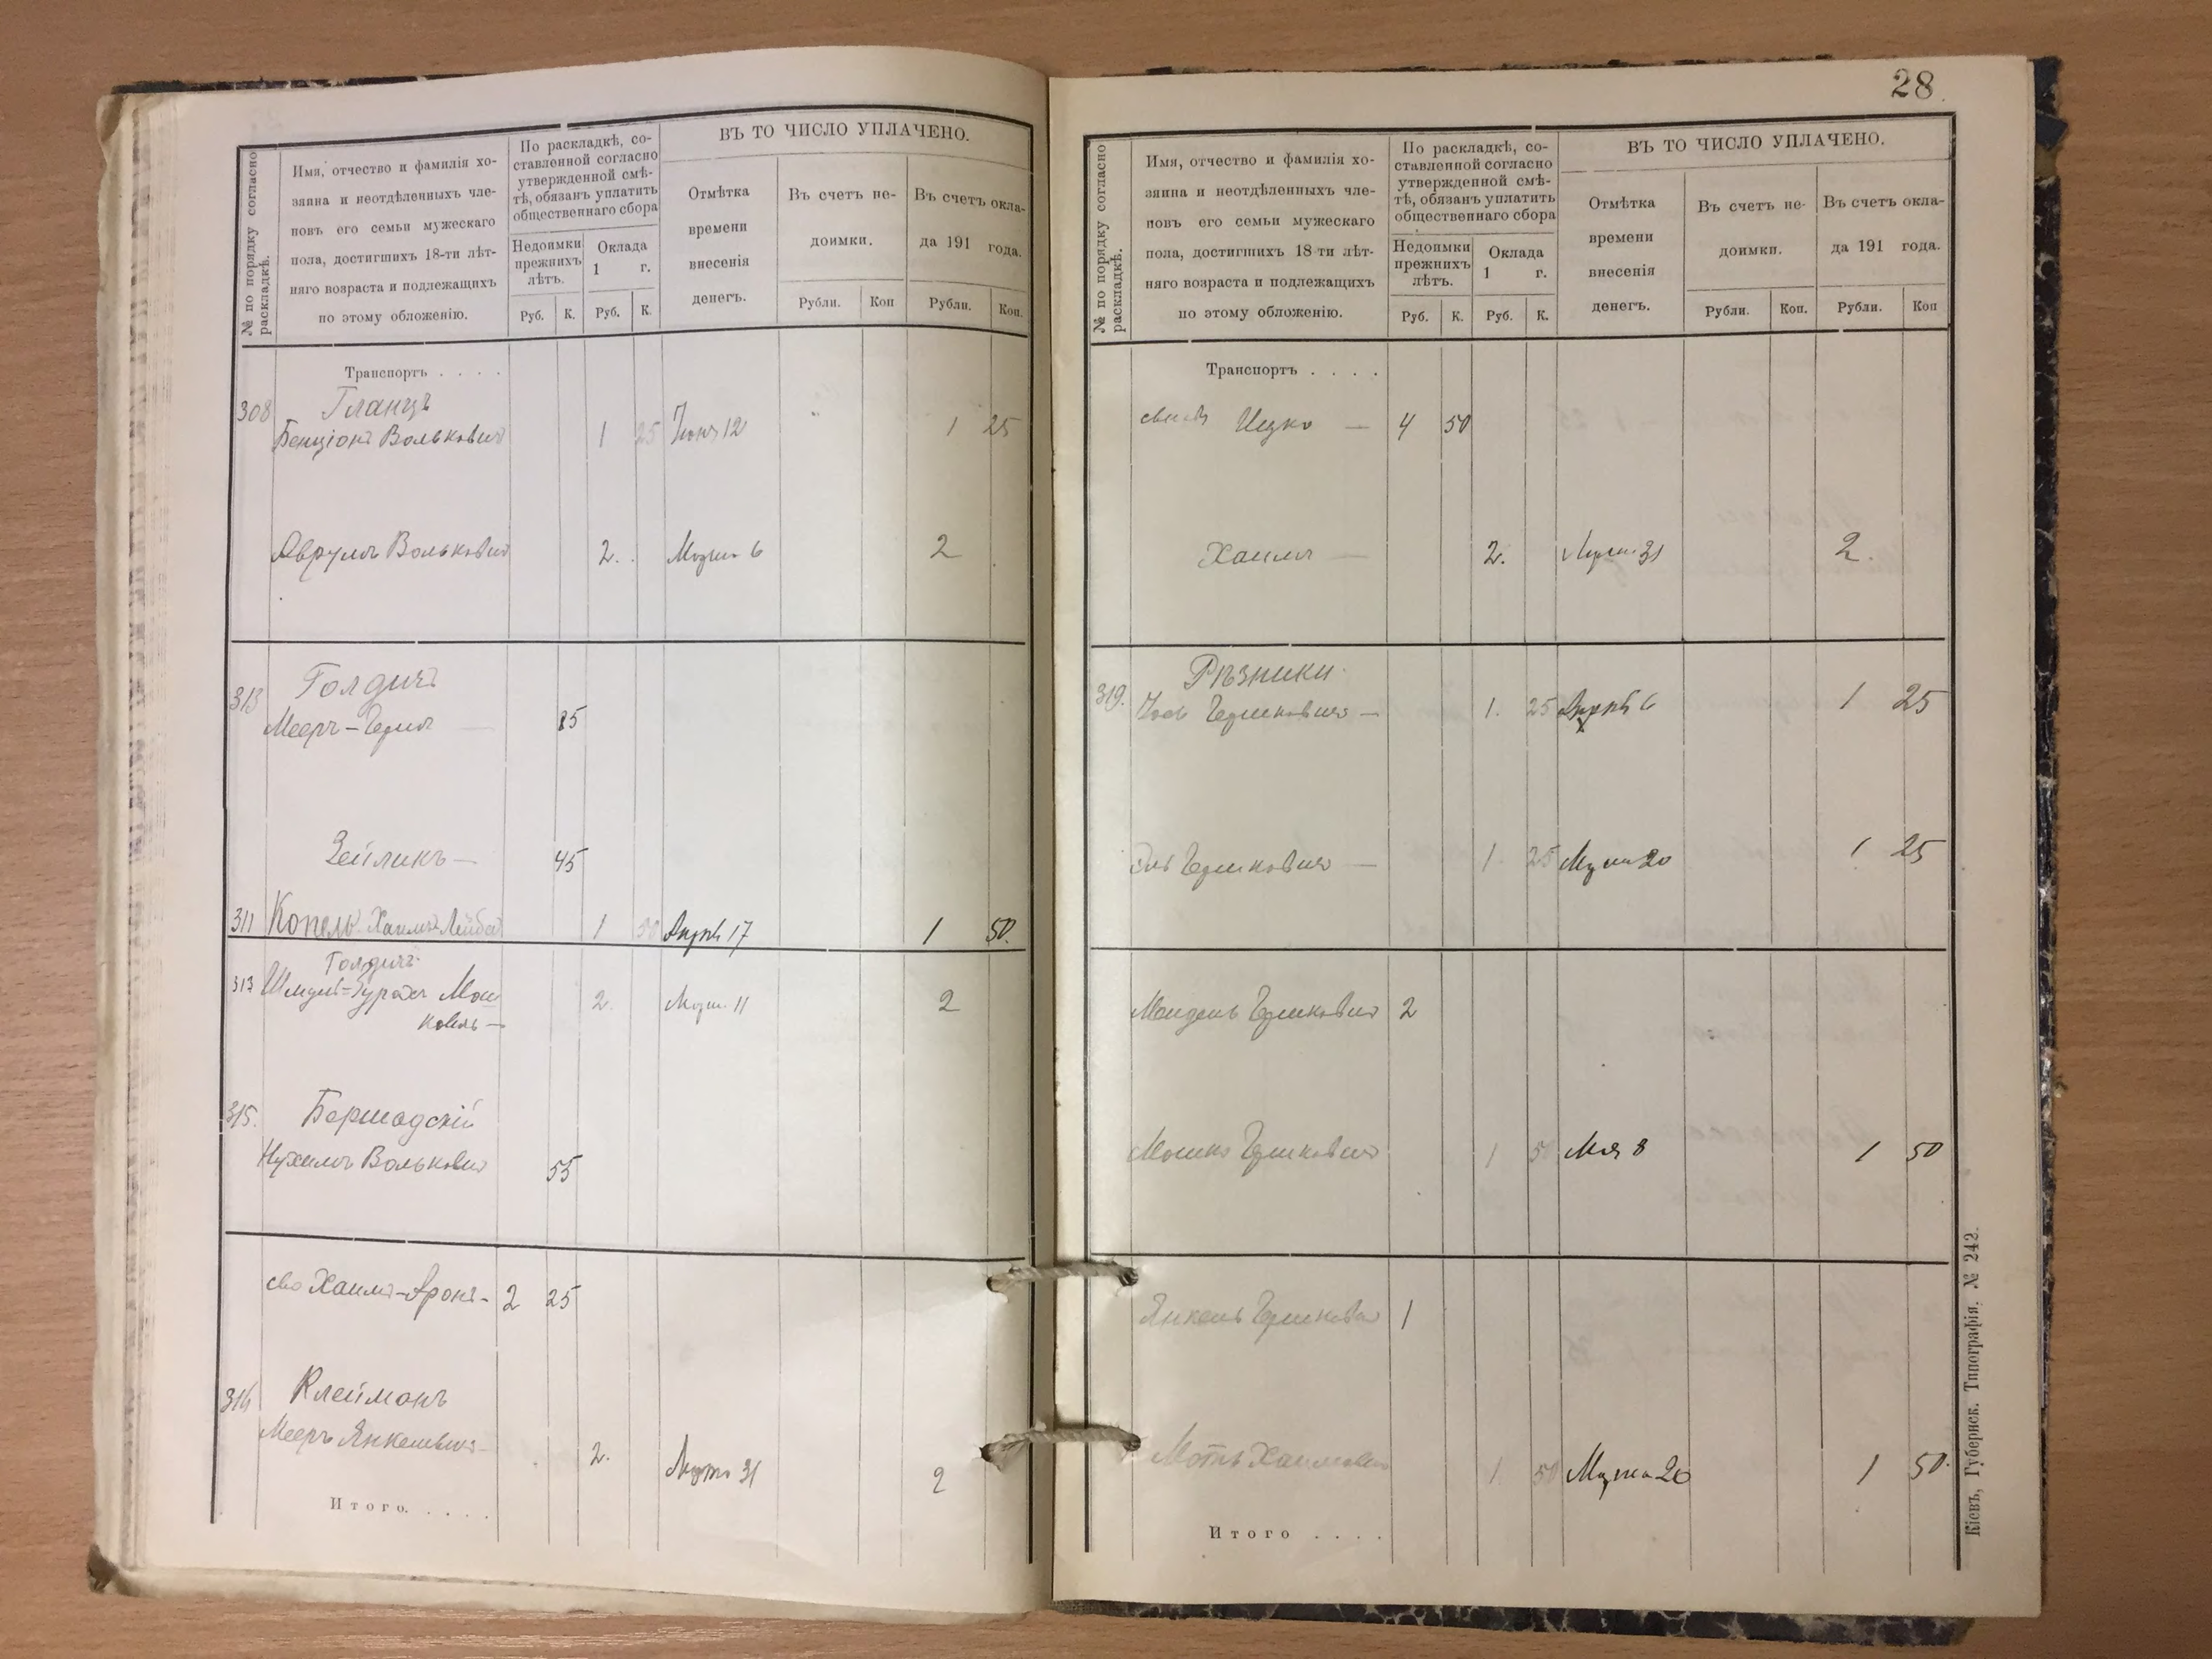 28
№ по порядку согласно раскладкѣ.
Имя, отчество и фамилія хо-
зяина и неотдѣленныхъ чле-
новъ его семьи мужескаго
пола, достигшихъ 18-ти лѣт-
няго возраста и подлежащихъ
по этому обложенію.
По раскладкѣ, со-
ставленной согласно
утвержденной смѣ-
тѣ, обязанъ уплатить
общественнаго сбора
Недоимки
прежнихъ
лѣтъ.
Оклада
1 г.
Руб. К. Руб. К.
ВЪ ТО ЧИСЛО УПЛАЧЕНО.
Отмѣтка
времени
внесенія
денегъ.
Въ счетъ не-
доимки.
Въ счетъ окла-
да 191 года.
Рубли. Коп Рубли. Коп.
Транспортъ . . . .
308 Гланцъ
Бенціонъ Вольковичъ 1 25 Іюня 12 1 25
Аврумъ Вольковичъ 2. Марта 6 2
313 Голдичъ
Мееръ-Герш 85
Зейликъ — 45
311 Копель Хаимъ Лейба 1 50 Апрѣ 17 1 50.
Голдичъ
313 Мош
ковъ — 2. Мар. 11 2
315. Бершадскій
Нухимъ Вольковичъ 55
Хаимъ-Аронъ- 2 25
316 Клейманъ
Мееръ Янкелевичъ 2. Марта 31 2
Итого. . . . .
№ по порядку согласно раскладкѣ.
Имя, отчество и фамилія хо-
зяина и неотдѣленныхъ чле-
новъ его семьи мужескаго
пола, достигшихъ 18 ти лѣт-
няго возраста и подлежащихъ
по этому обложенію.
По раскладкѣ, со-
ставленной согласно
утвержденной смѣ-
тѣ, обязанъ уплатить
общественнаго сбора
Недоимки
прежнихъ
лѣтъ.
Оклада
1 г.
Руб. К. Руб. К.
ВЪ ТО ЧИСЛО УПЛАЧЕНО.
Отмѣтка
времени
внесенія
денегъ.
Въ счетъ не-
доимки.
Въ счетъ окла-
да 191 года.
Рубли. Коп. Рубли. Коп
Транспортъ . . . .
Ицко — 4 50
Хаимъ — 2. Марта 31 2.
319. Рѣзники
Іось Гершковичъ — 1. 25 Апрѣ 6 1 25
Эль Гершковичъ — 1 25 Марта 20 1 25
Мендель Гершковичъ 2
Мошко Гершковичъ 1 50 Мая 8 1 50
Янкель Гершкович 1
Мотль Хаимович 1 50 Марта 20 1 50.
Итого . . . .
Кіевъ, Губернск. Типографія. № 242.